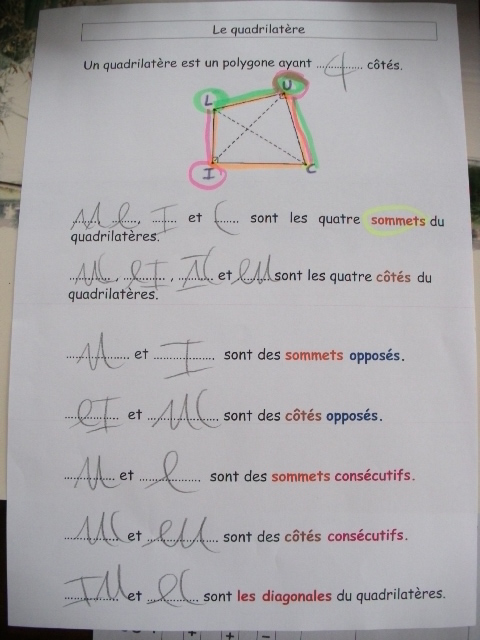 Le quadrilatère
Un quadrilatère est un polygone ayant ...4... côtés.
L U
I C
U, L, I et C sont les quatre sommets du
quadrilatères.
UC, LI, IC et LU sont les quatre côtés du
quadrilatères.
U et I sont des sommets opposés.
LI et UC sont des côtés opposés.
U et L sont des sommets consécutifs.
UC et LU sont des côtés consécutifs.
IU et LC sont les diagonales du quadrilatères.